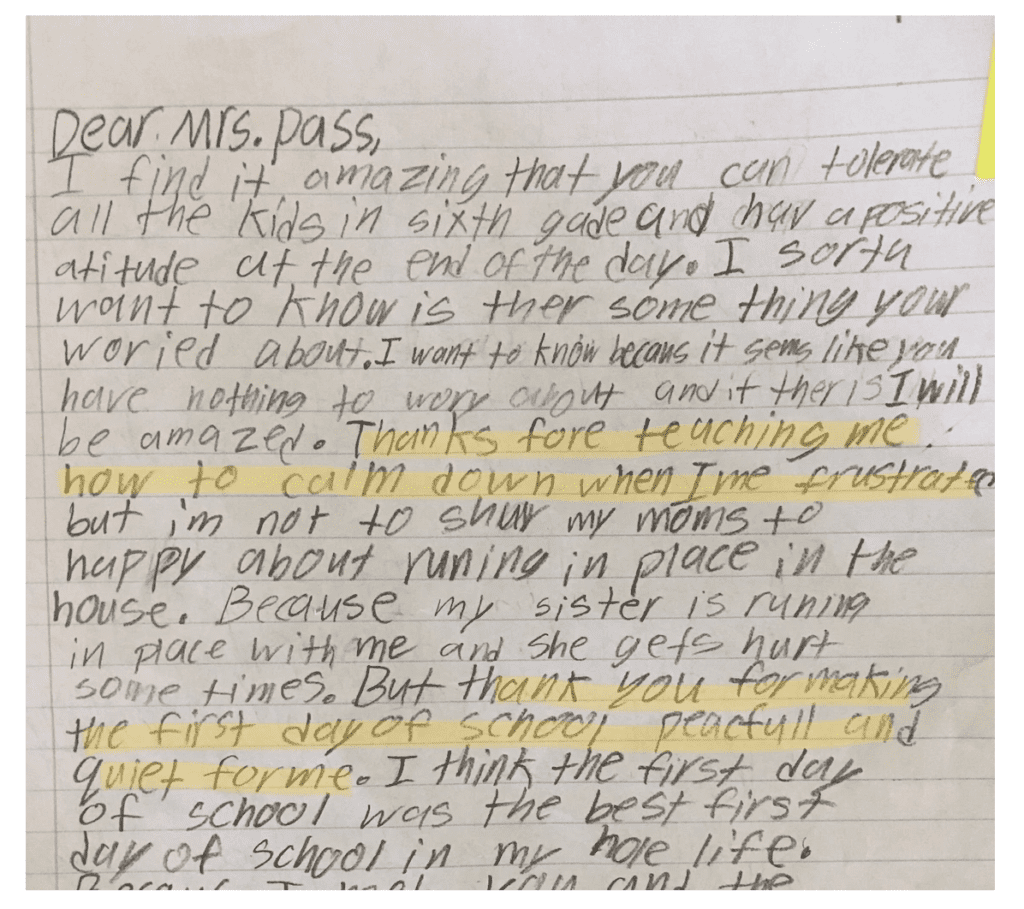 Dear Mrs. Pass,
I find it amazing that you can tolerate
all the kids in sixth gade and hav a positive
atitude at the end of the day. I sorta
want to know is ther some thing your
woried about. I want to know becaus it sems like you
have nothing to wory about and if ther is I will
be amazed. Thanks fore teaching me
how to calm down when I me frustrated
but i'm not to shur my moms to
happy about runing in place in the
house. Because my sister is runing
in place with me and she gets hurt
some times. But thank you for making
the first day of school peacfull and
quiet for me. I think the first day
of school was the best first
day of school in my hole life.
Because I met you and the